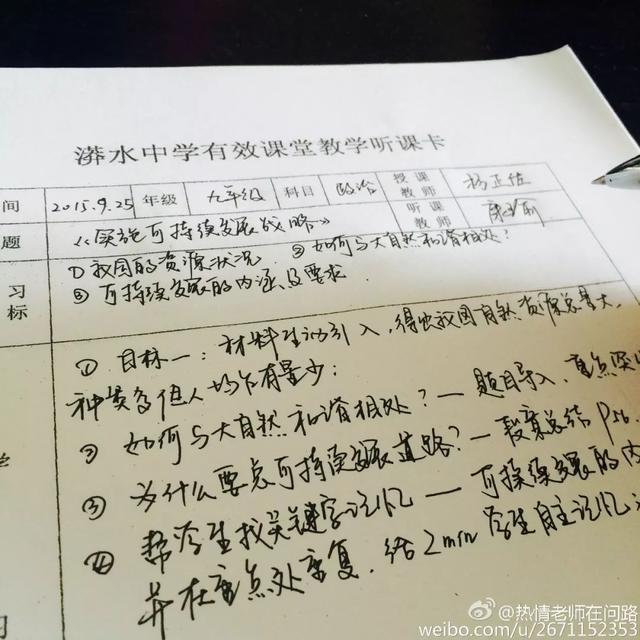 漭水中学有效课堂教学听课卡
间 2015.9.25 年级 九年级 科目 政治 授课教师 杨正佳
听课教师
题 《实施可持续发展战略》
习标 ①我国的资源状况 ②如何与大自然和谐相处?
③可持续发展的内涵及要求.
① 目标一:材料生动引入,得出我国自然资源总量大,
种类多但人均占有量少;
② 如何与大自然和谐相处?—题目导入,重点突出
③ 为什么要走可持续发展道路?—教案总结 P56.
④ 帮学生找关键字记忆—可持续发展的内
并在重点处重复.给2min学生自主记忆
习
@热情老师在问路
weibo.com/u/2671152353